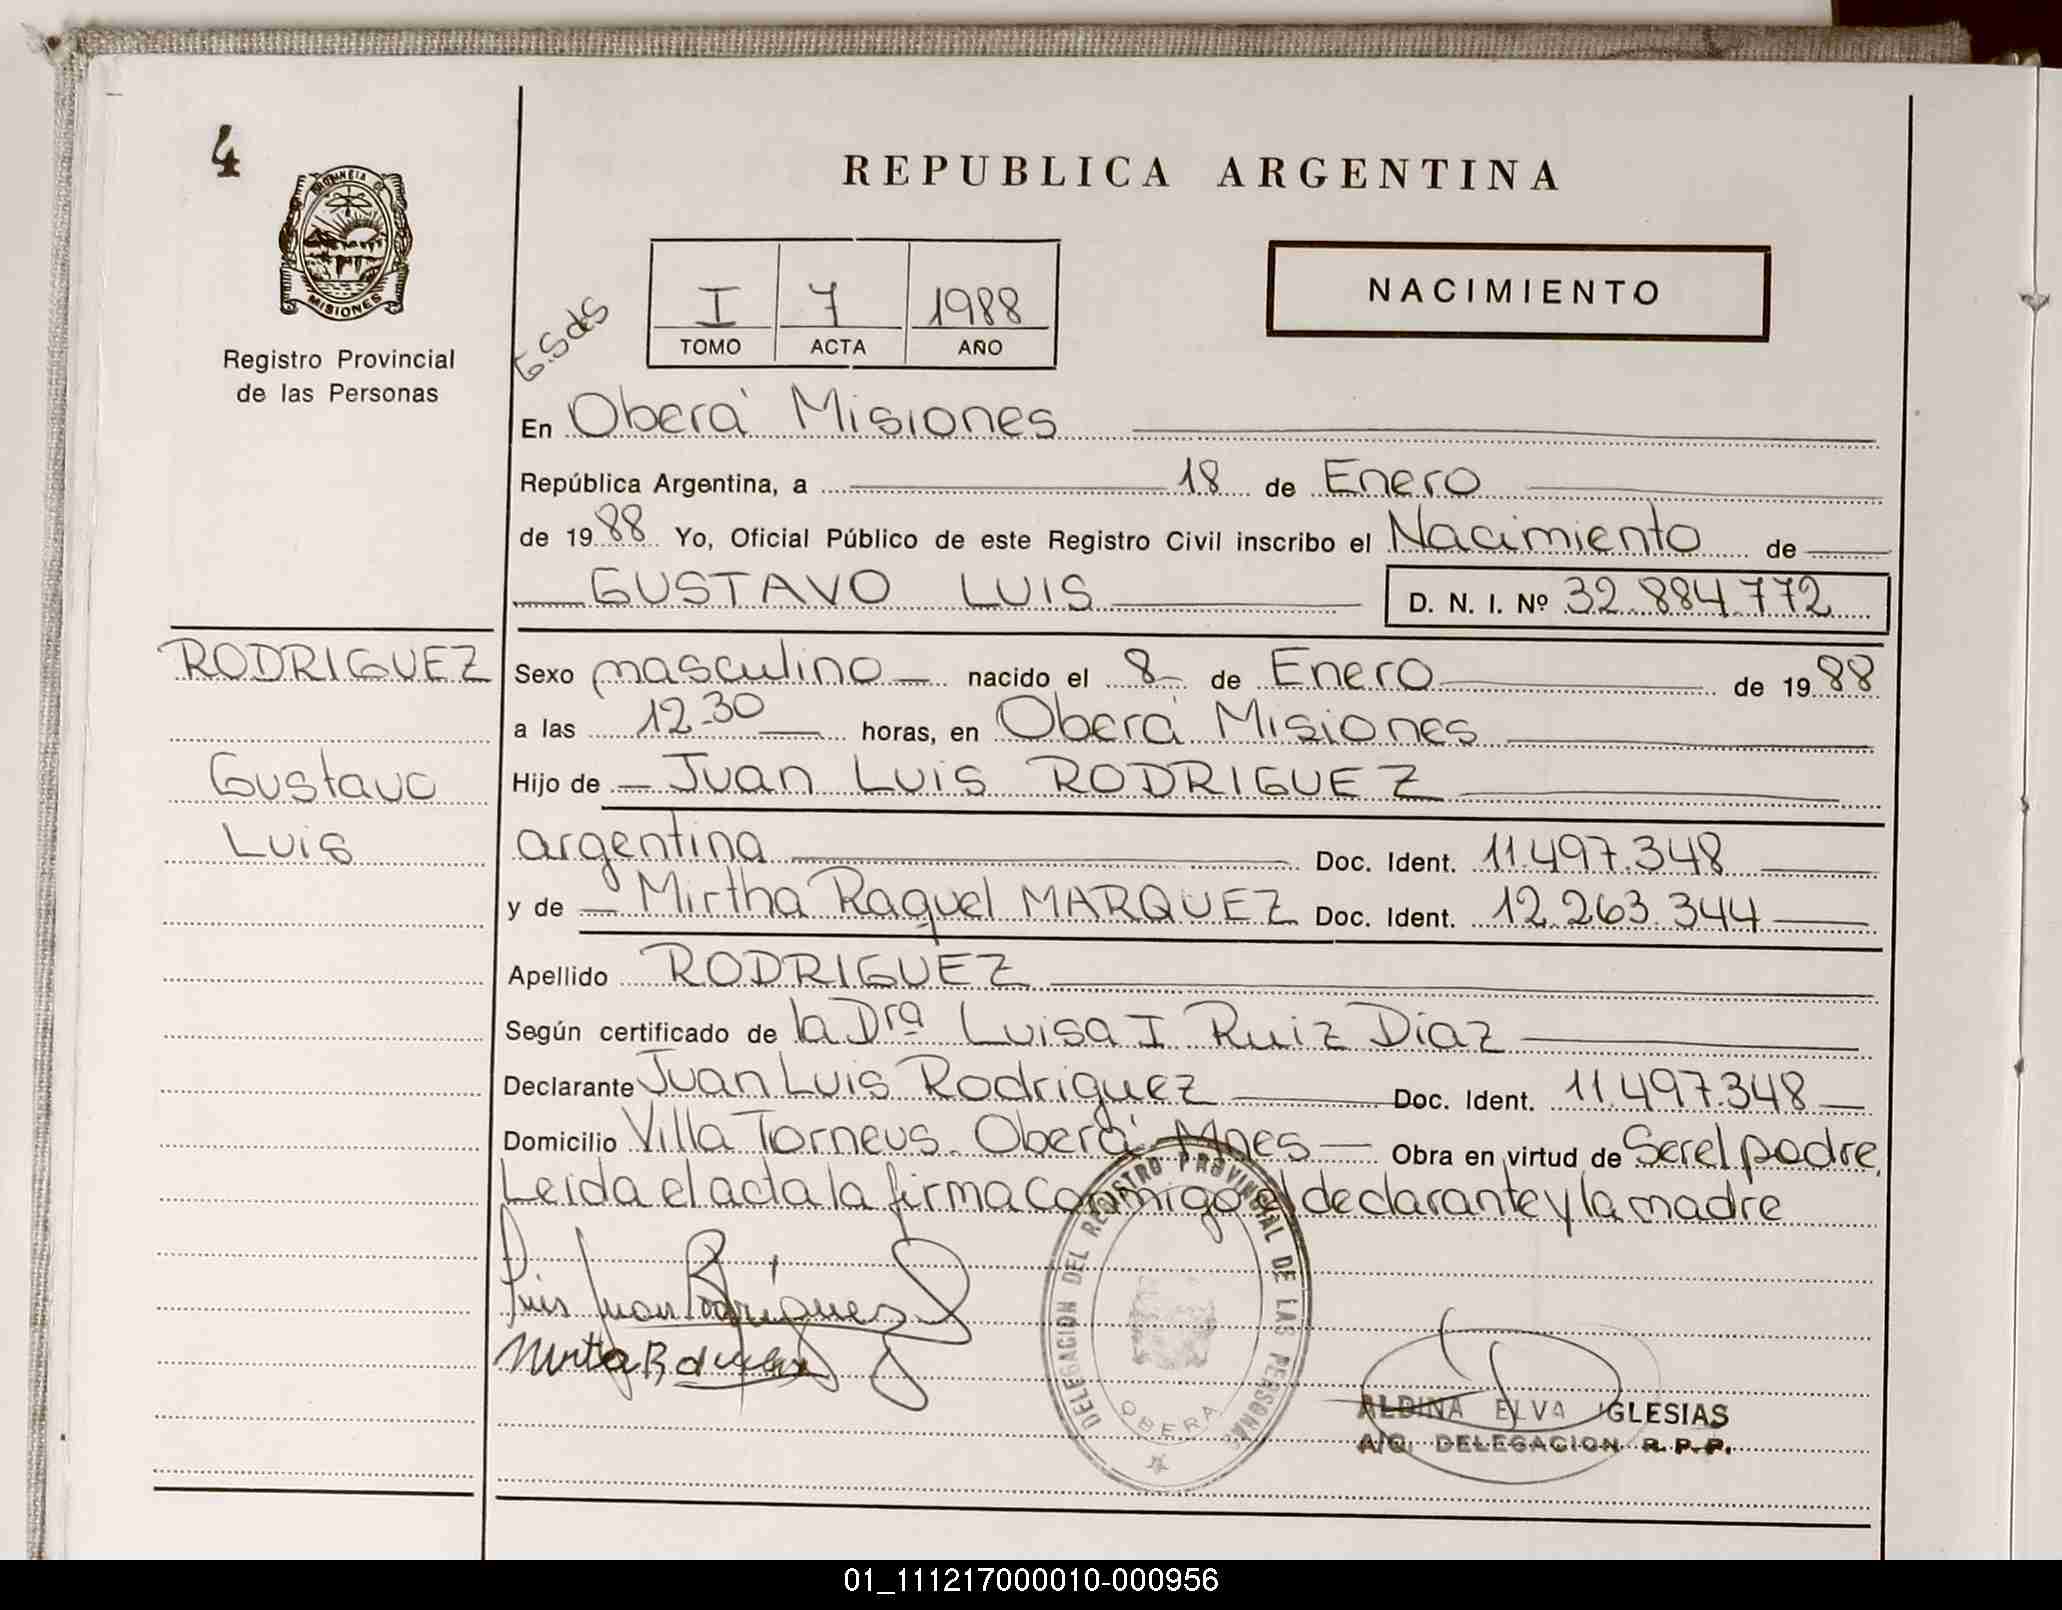 4
PROVINCIA DE
MISIONES
Registro Provincial
de las Personas
REPUBLICA ARGENTINA
I 7 1988
TOMO ACTA AÑO
NACIMIENTO
En Oberá Misiones
República Argentina, a 18 de Enero
de 1988 Yo, Oficial Público de este Registro Civil inscribo el Nacimiento de
GUSTAVO LUIS D. N. I. Nº 32.884.772
RODRIGUEZ
Gustavo
Luis
Sexo masculino nacido el 8 de Enero de 1988
a las 12-30 horas, en Oberá Misiones
Hijo de Juan Luis RODRIGUEZ
argentina Doc. Ident. 11.497.348
y de Mirtha Raquel MARQUEZ Doc. Ident. 12.263.344
Apellido RODRIGUEZ
Según certificado de la Dra Luisa I Ruiz Diaz
Declarante Juan Luis Rodriguez Doc. Ident. 11.497.348
Domicilio Villa Torneus. Oberá Mnes Obra en virtud de Ser el padre.
Leida el acta la firma conmigo el declarante y la madre
Luis Juan Rodríguez
DELEGACION DEL REGISTRO PROVINCIAL DE LAS PERSONAS
OBERA
ALDINA ELVA IGLESIAS
A/C. DELEGACION R. P. P.
01_111217000010-000956